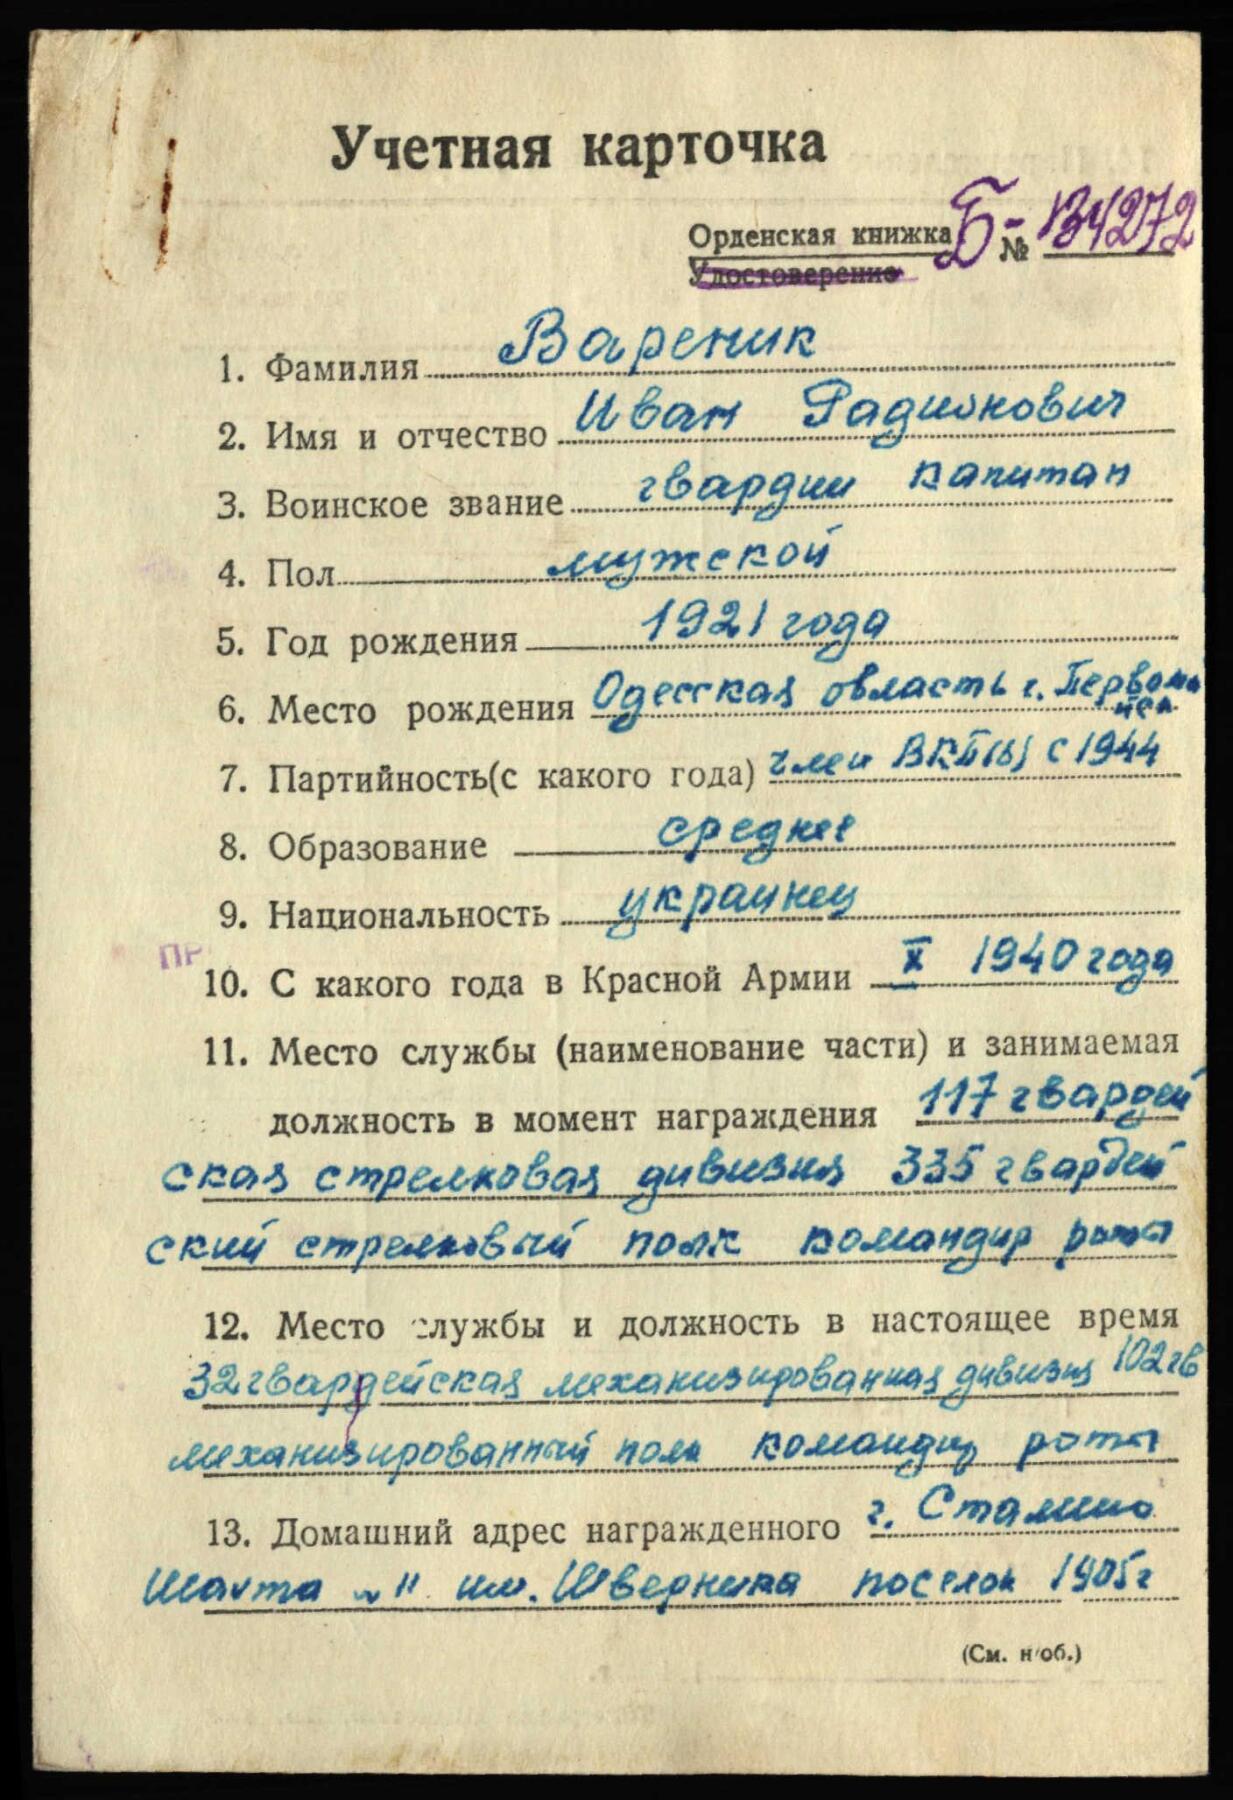 Учетная карточка
Орденская книжка Б- № 134272
Удостоверение
1. Фамилия Вареник
2. Имя и отчество Иван Радионович
3. Воинское звание гвардии капитан
4. Пол мужской
5. Год рождения 1921 года
6. Место рождения Одесская область г. Первомай
ск
7. Партийность(с какого года) член ВКП(б) с 1944
8. Образование среднее
9. Национальность украинец
ПР
10. С какого года в Красной Армии X 1940 года
11. Место службы (наименование части) и занимаемая
должность в момент награждения 117 гвардей
ская стрелковая дивизия 335 гвардей
ский стрелковый полк командир роты
12. Место службы и должность в настоящее время
32 гвардейская механизированная дивизия 102 гв
механизированный полк командир роты
13. Домашний адрес награжденного г. Сталино
Шахта 11 им. Шверника поселок 1905 г
(См. н/об.)